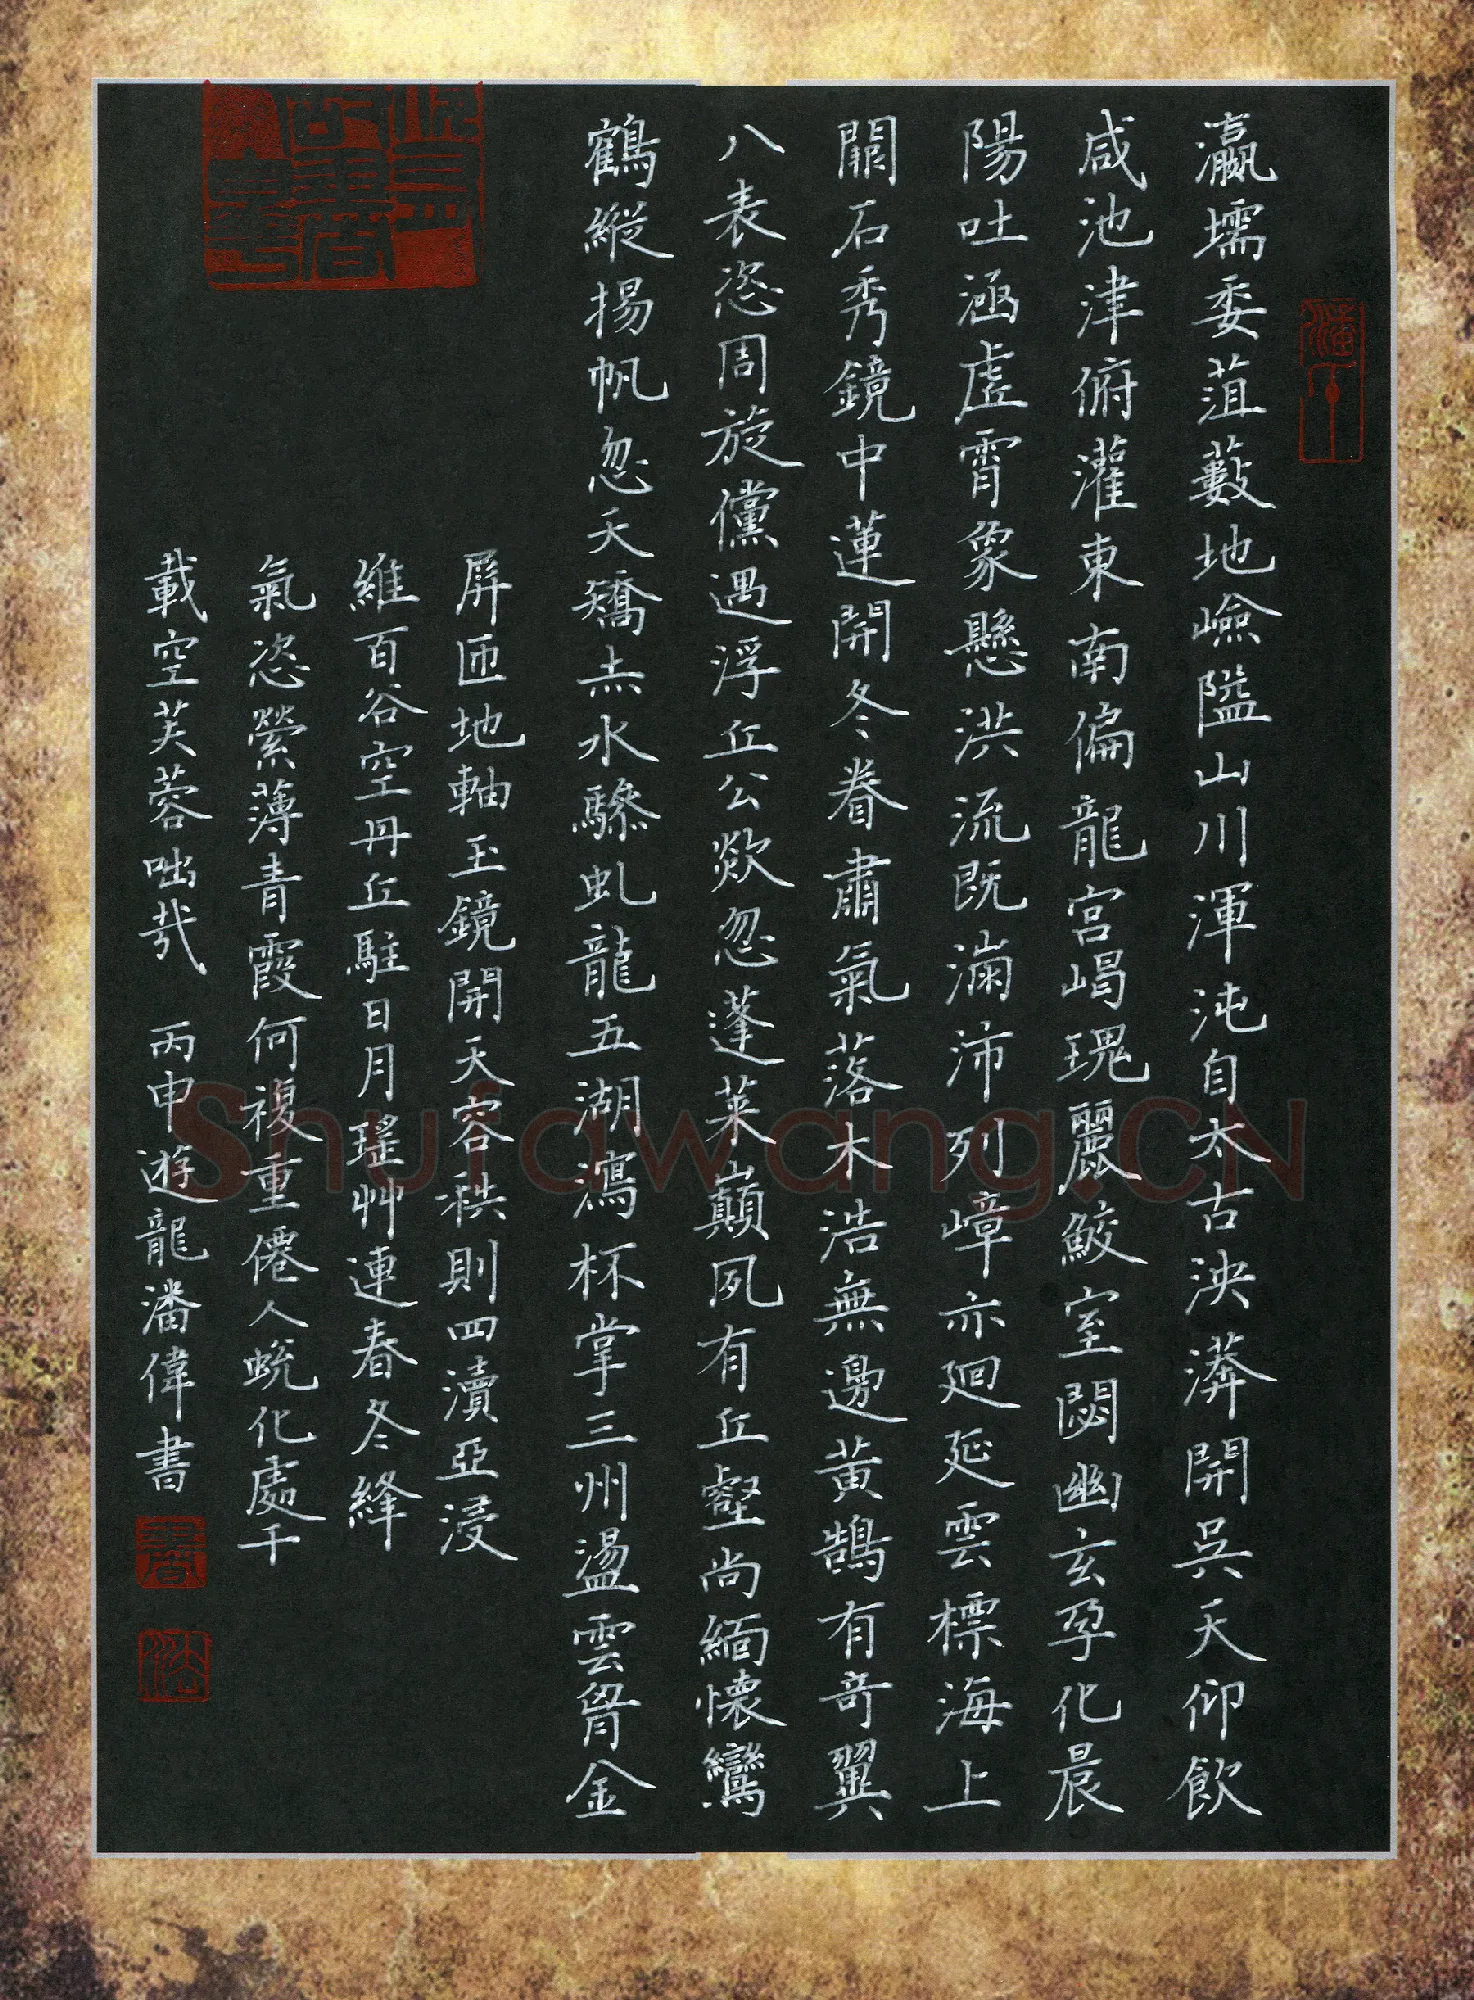 瀛壖委菹藪地嶮隘山川渾沌自太古泱漭開吳天仰飲
咸池津俯灌東南偏龍宮嵑瑰麗鮫室閟幽玄孕化晨
陽吐涵虛霄象懸洪流既滿沛列嶂亦廻延雲標海上
關石秀鏡中蓮開冬眷肅氣落木浩無邊黃鵠有奇翼
八表恣周旋儻遇浮丘公欻忽蓬萊巔夙有丘壑尚緬懷鸞
鶴縱揚帆忽夭矯赤水驂虬龍五湖瀉杯掌三州盪雲胷金
屏匝地軸玉鏡開天容秩則四瀆亞浸
維百谷空丹丘駐日月瑤艸連春冬絳
氣恣縈薄青霞何複重僊人蛻化處千
載空芙蓉咄哉 丙申遊龍潘偉書
Shufawang.CN